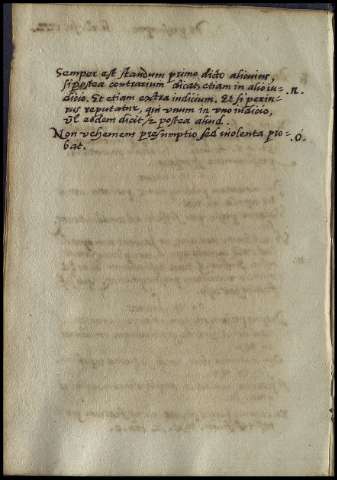 Semper est standum primo dicto alicuius,
si postea contrarium dicat, etiam in alio iu- .n.
dicio. Et etiam extra iudicium. Et si periu-
rus reputatur, qui vnum in vno iudicio,
vl eodem dicit, & postea aliud.
Non vehemens præsumptio sed violenta pro- .o.
bat.